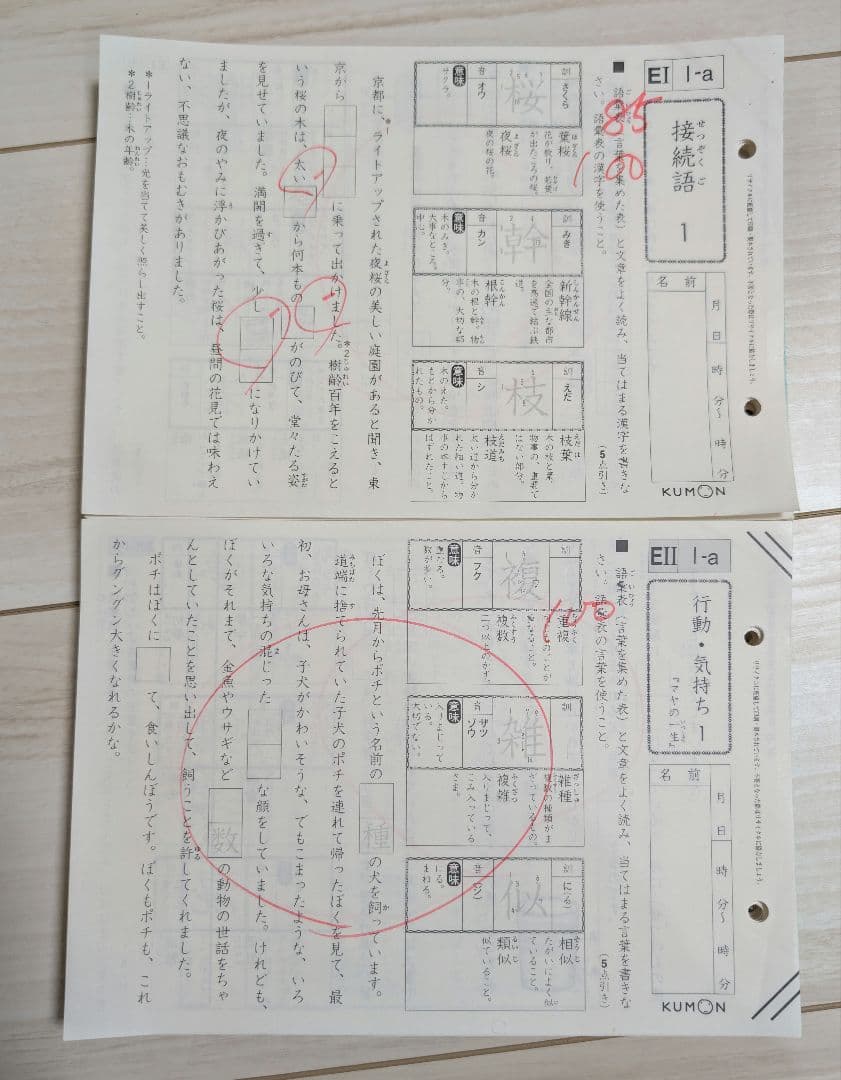 EI 1-a
せつぞくご
接続語 1
名前
月 日 時 分～ 時 分
KUMON
■ 語彙表(言葉を集めた表)と文章をよく読み、当てはまる漢字を書きな
さい。語彙表の漢字を使うこと。
(5点引き)
85
100
訓 さくら
桜
音 オウ
意味
サクラ。
葉桜
花が散り、若葉
が出たころの桜。
夜桜
夜の桜の花。
訓 みき
幹
音 カン
意味
木のみき。
大事なところ。
中心。
しんかんせん
新幹線
全国の主な都市
を高速で結ぶ鉄
道。
こんかん
根幹
木の根と幹。物
事の、大切な部
分。
訓 えだ
枝
音 シ
意味
木のえだ。
もとから分か
れたもの。
えだは
枝葉
木の枝と葉。
物事の、重要で
はない部分。
えだみち
枝道
太い道から分か
れた細い道。物
事の本すじから
はずれたこと。
京都に、ライトアップされた夜桜の美しい庭園があると聞き、東
京から に乗って出かけました。樹齢百年をこえると
いう桜の木は、太い から何本もの がのびて、堂々たる姿
を見せていました。満開を過ぎて、少し になりかけてい
ましたが、夜のやみに浮かびあがった桜は、昼間の花見では味わえ
ない、不思議なおもむきがありました。
*1ライトアップ…光を当てて美しく照らし出すこと。
*2樹齢…木の年齢。
EII 1-a
行動・気持ち 1
『マヤの一生』
名前
月 日 時 分～ 時 分
KUMON
■ 語彙表(言葉を集めた表)と文章をよく読み、当てはまる言葉を書きな
さい。語彙表の言葉を使うこと。
(5点引き)
100
訓
複
音 フク
意味
重なる。
数が多い。
重複
複数
二つ以上のかず。
訓
雑
音 ザツ
ゾウ
意味
入りまじって
いる。
大切でない。
ざっしゅ
雑種
複数の種類がま
ざっているもの。
ふくざつ
複雑
入りまじって、
こみ入っている
さま。
訓 に(る)
似
音 (ジ)
意味
にる。
まねる。
相似
たがいによく似
ていること。
るいじ
類似
似ていること。
ぼくは、先月からポチという名前の 種 の犬を飼っています。
道端に捨てられていた子犬のポチを連れて帰ったぼくを見て、最
初、お母さんは、子犬がかわいそうな、でもこまったような、いろ
いろな気持ちの混じった な顔をしていました。けれども、
ぼくがそれまで、金魚やウサギなど 数 の動物の世話をちゃ
んとしていたことを思い出して、飼うことを許してくれました。
ポチはぼくに て、食いしんぼうです。ぼくもポチも、これ
からグングン大きくなれるかな。